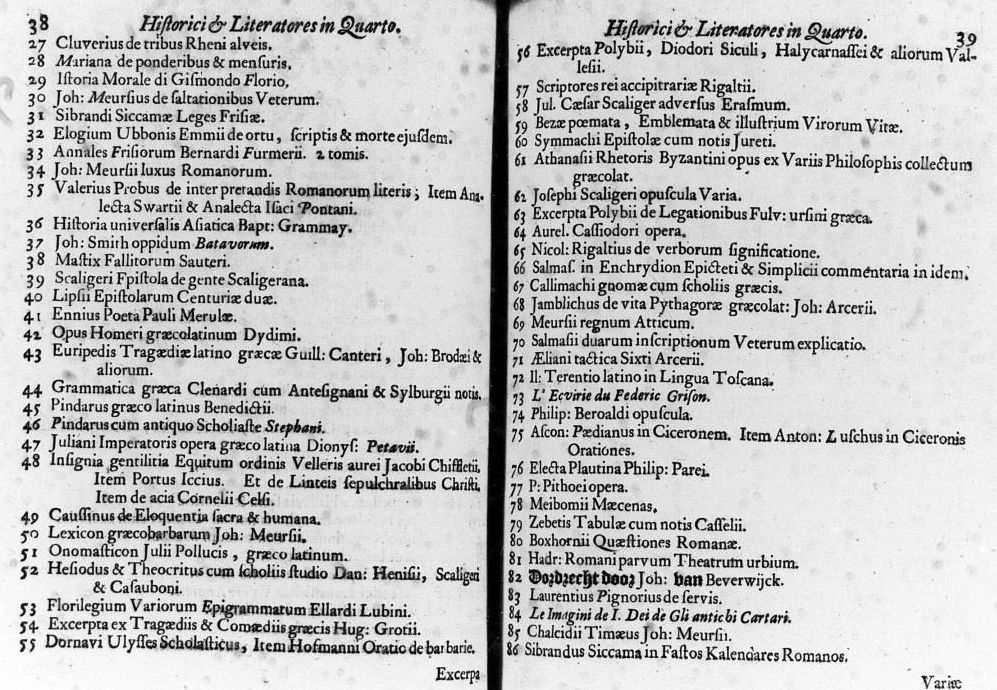 38 Hiſtorici & Literatores in Quarto.
27 Cluverius de tribus Rheni alveis.
28 Mariana de ponderibus & menſuris.
29 Iſtoria Morale di Giſmondo Florio.
30 Joh: Meurſius de ſaltationibus Veterum.
31 Sibrandi Siccamæ Leges Friſiæ.
32 Elogium Ubbonis Emmii de ortu, ſcriptis & morte ejuſdem.
33 Annales Friſiorum Bernardi Furmerii. 2 tomis.
34 Joh: Meurſii luxus Romanorum.
35 Valerius Probus de interpretandis Romanorum literis; Item Ana-
lecta Swartii & Analecta Iſaci Pontani.
36 Hiſtoria univerſalis Aſiatica Bapt: Grammay.
37 Joh: Smith oppidum Batavorum.
38 Maſtix Fallitorum Sauteri.
39 Scaligeri Fpiſtola de gente Scaligerana.
40 Lipſii Epiſtolarum Centuriæ duæ.
41 Ennius Poeta Pauli Merulæ.
42 Opus Homeri græcolatinum Dydimi.
43 Euripedis Tragædiæ latino græcæ Guill: Canteri, Joh: Brodæi &
aliorum.
44 Grammatica græca Clenardi cum Anteſignani & Sylburgii notis.
45 Pindarus græco latinus Benedictii.
46 Pindarus cum antiquo Scholiaſte Stephani.
47 Juliani Imperatoris opera græco latina Dionyſ: Petavii.
48 Inſignia gentilitia Equitum ordinis Velleris aurei Jacobi Chiffletii,
Item Portus Iccius. Et de Linteis ſepulchralibus Chriſti,
Item de acia Cornelii Celſi.
49 Cauſſinus de Eloquentia ſacra & humana.
50 Lexicon græcobarbarum Joh: Meurſii.
51 Onomaſticon Julii Pollucis, græco latinum.
52 Heſiodus & Theocritus cum ſcholiis ſtudio Dan: Heniſii, Scaligeri
& Caſauboni.
53 Florilegium Variorum Epigrammatum Ellardi Lubini.
54 Excerpta ex Tragædiis & Comædiis græcis Hug: Grotii.
55 Dornavi Ulyſſes Scholaſticus, Item Hofmanni Oratio de barbarie.
Excerpa
Hiſtorici & Literatores in Quarto. 39
56 Excerpta Polybii, Diodori Siculi, Halycarnaſſei & aliorum Val-
leſii.
57 Scriptores rei accipitrariæ Rigaltii.
58 Jul. Cæſar Scaliger adverſus Eraſmum.
59 Bezæ poemata, Emblemata & illuſtrium Virorum Vitæ.
60 Symmachi Epiſtolæ cum notis Jureti.
61 Athanaſii Rhetoris Byzantini opus ex Variis Philoſophis collectum
græcolat.
62 Joſephi Scaligeri opuſcula Varia.
63 Excerpta Polybii de Legationibus Fulv: urſini græca.
64 Aurel. Caſſiodori opera.
65 Nicol: Rigaltius de verborum ſignificatione.
66 Salmaſ. in Enchrydion Epicteti & Simplicii commentaria in idem.
67 Callimachi gnomæ cum ſcholiis græcis.
68 Jamblichus de vita Pythagoræ græcolat: Joh: Arcerii.
69 Meurſii regnum Atticum.
70 Salmaſii duarum inſcriptionum Veterum explicatio.
71 Æliani tactica Sixti Arcerii.
72 Il: Terentio latino in Lingua Toſcana.
73 L' Ecvirie du Federic Griſon.
74 Philip: Beroaldi opuſcula.
75 Aſcon: Pædianus in Ciceronem. Item Anton: Luſchus in Ciceronis
Orationes.
76 Electa Plautina Philip: Parei.
77 P: Pithoei opera.
78 Meibomii Mæcenas.
79 Zebetis Tabulæ cum notis Caſſelii.
80 Boxhornii Quæſtiones Romanæ.
81 Hadr: Romani parvum Theatrum urbium.
82 Dordrecht door Joh: van Beverwijck.
83 Laurentius Pignorius de ſervis.
84 Le Imagini de I. Dei de Gli antichi Cartari.
85 Chalcidii Timæus Joh: Meurſii.
86 Sibrandus Siccama in Faſtos Kalendares Romanos.
Variæ